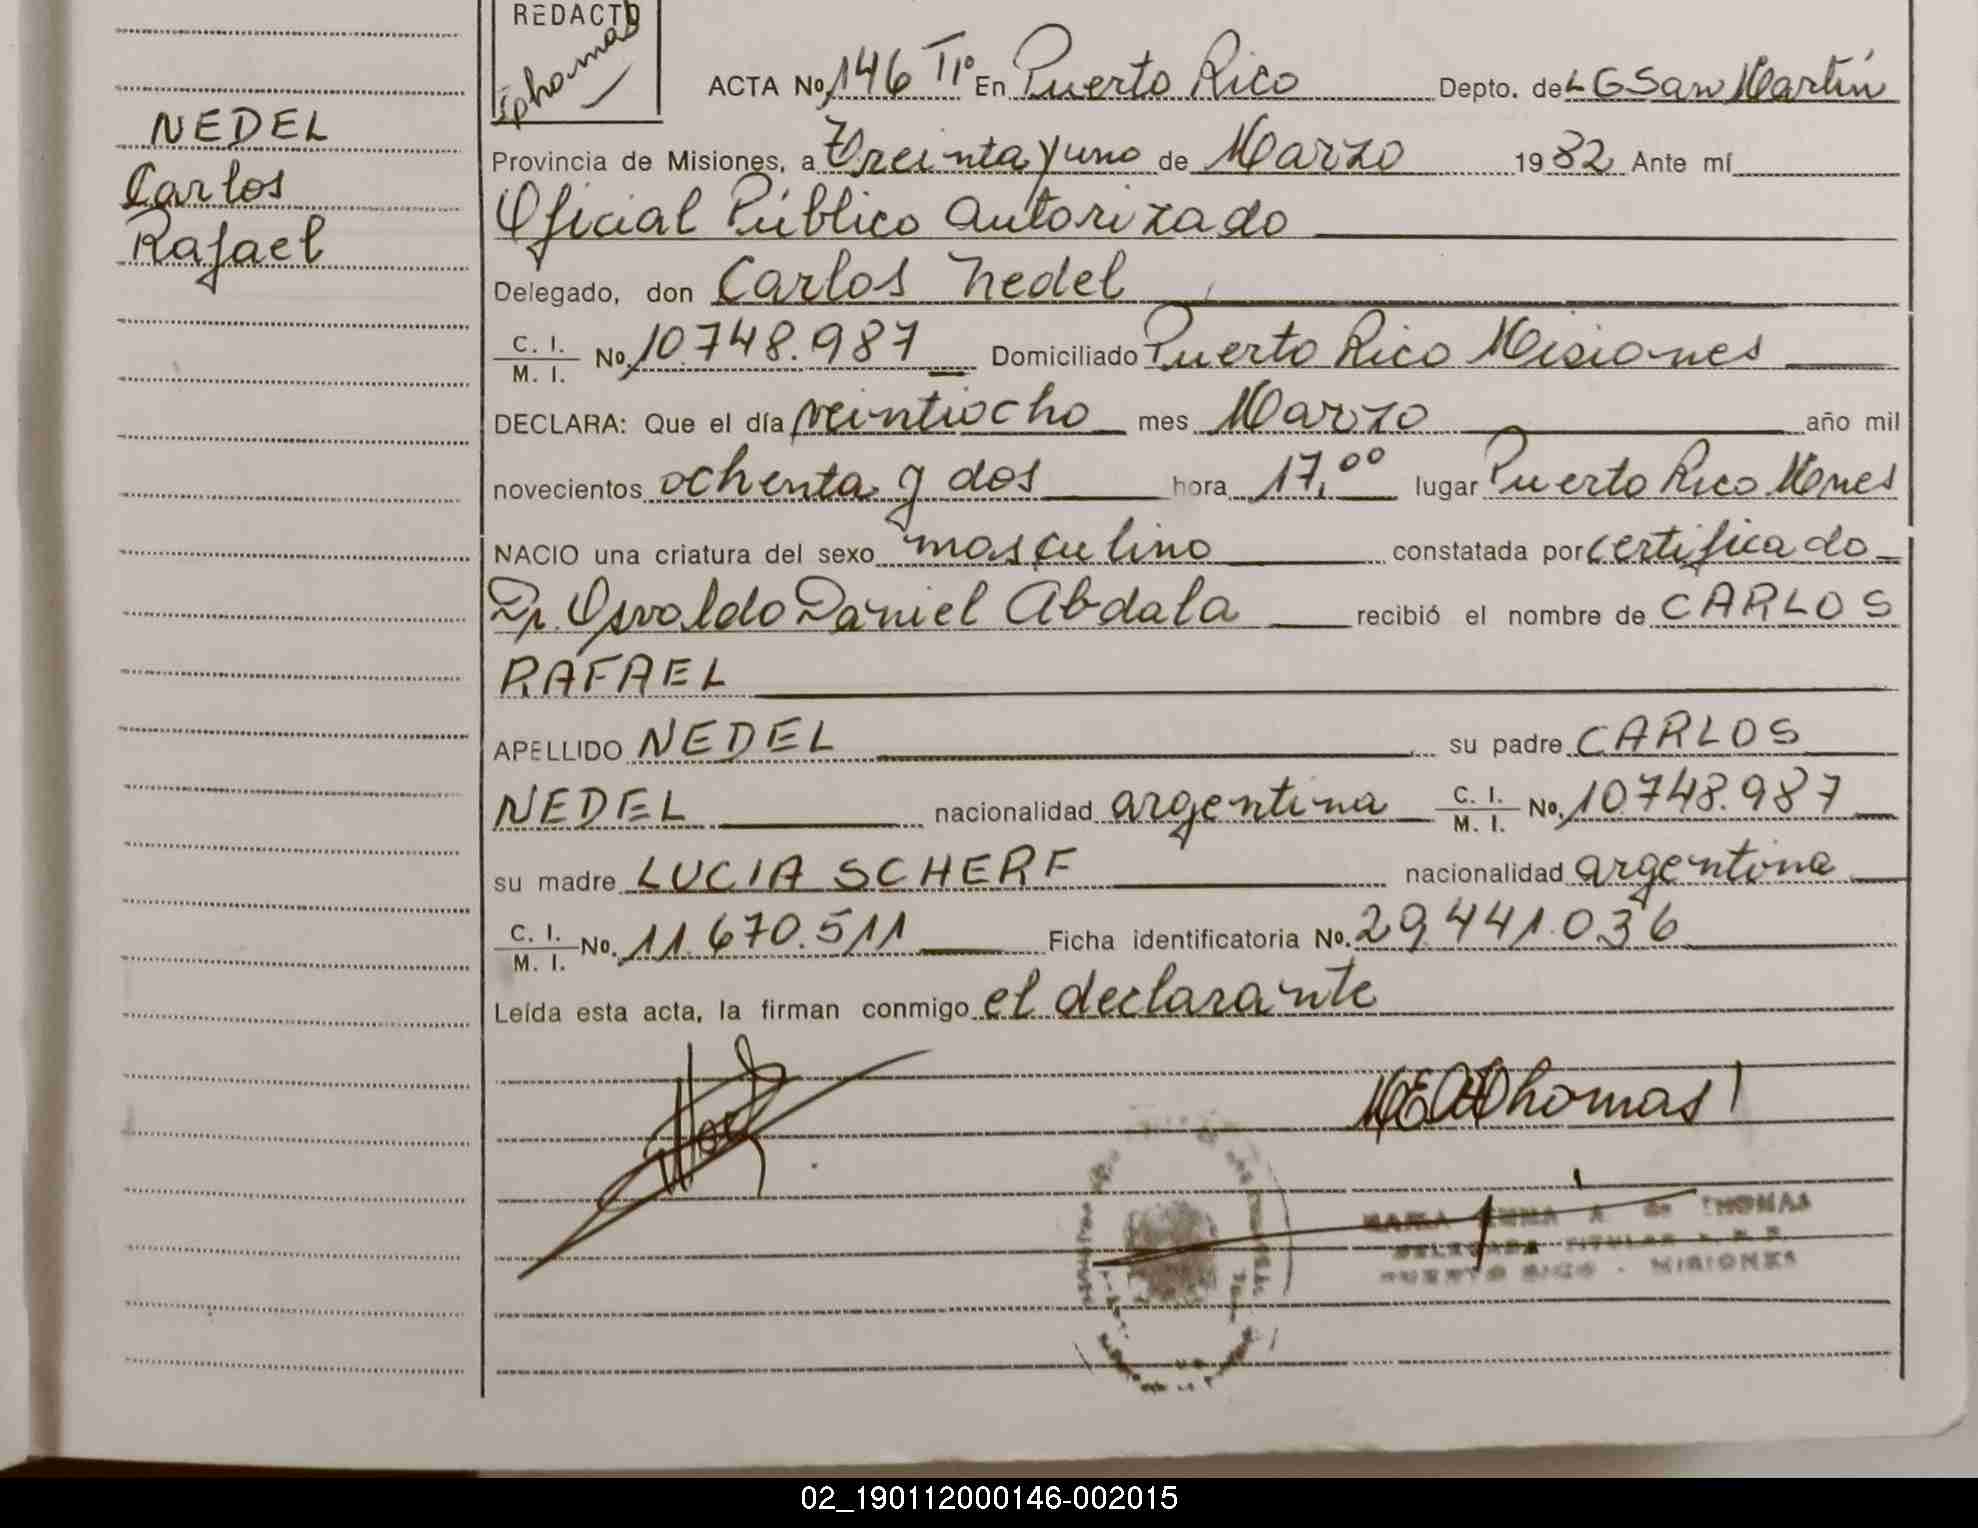 REDACTO
Thomas
NEDEL
Carlos
Rafael
ACTA No. 146 TIº En Puerto Rico Depto. de L G San Martín
Provincia de Misiones, a Treinta y uno de Marzo 1982 Ante mí
Oficial Público Autorizado
Delegado, don Carlos Nedel
C. I. / M. I. No. 10.748.987 Domiciliado Puerto Rico Misiones
DECLARA: Que el día veintiocho mes Marzo año mil
novecientos ochenta y dos hora 17,00 lugar Puerto Rico Mnes
NACIO una criatura del sexo masculino constatada por certificado
Dr. Osvaldo Daniel Abdala recibió el nombre de CARLOS
RAFAEL
APELLIDO NEDEL su padre CARLOS
NEDEL nacionalidad argentina C. I. / M. I. No. 10.748.987
su madre LUCIA SCHERF nacionalidad argentina
C. I. / M. I. No. 11.670.511 Ficha identificatoria No. 29.441.036
Leída esta acta, la firman conmigo el declarante
Thomas
MARIA EMMA A. de THOMAS
DELEGADA TITULAR
PUERTO RICO - MISIONES
02_190112000146-002015